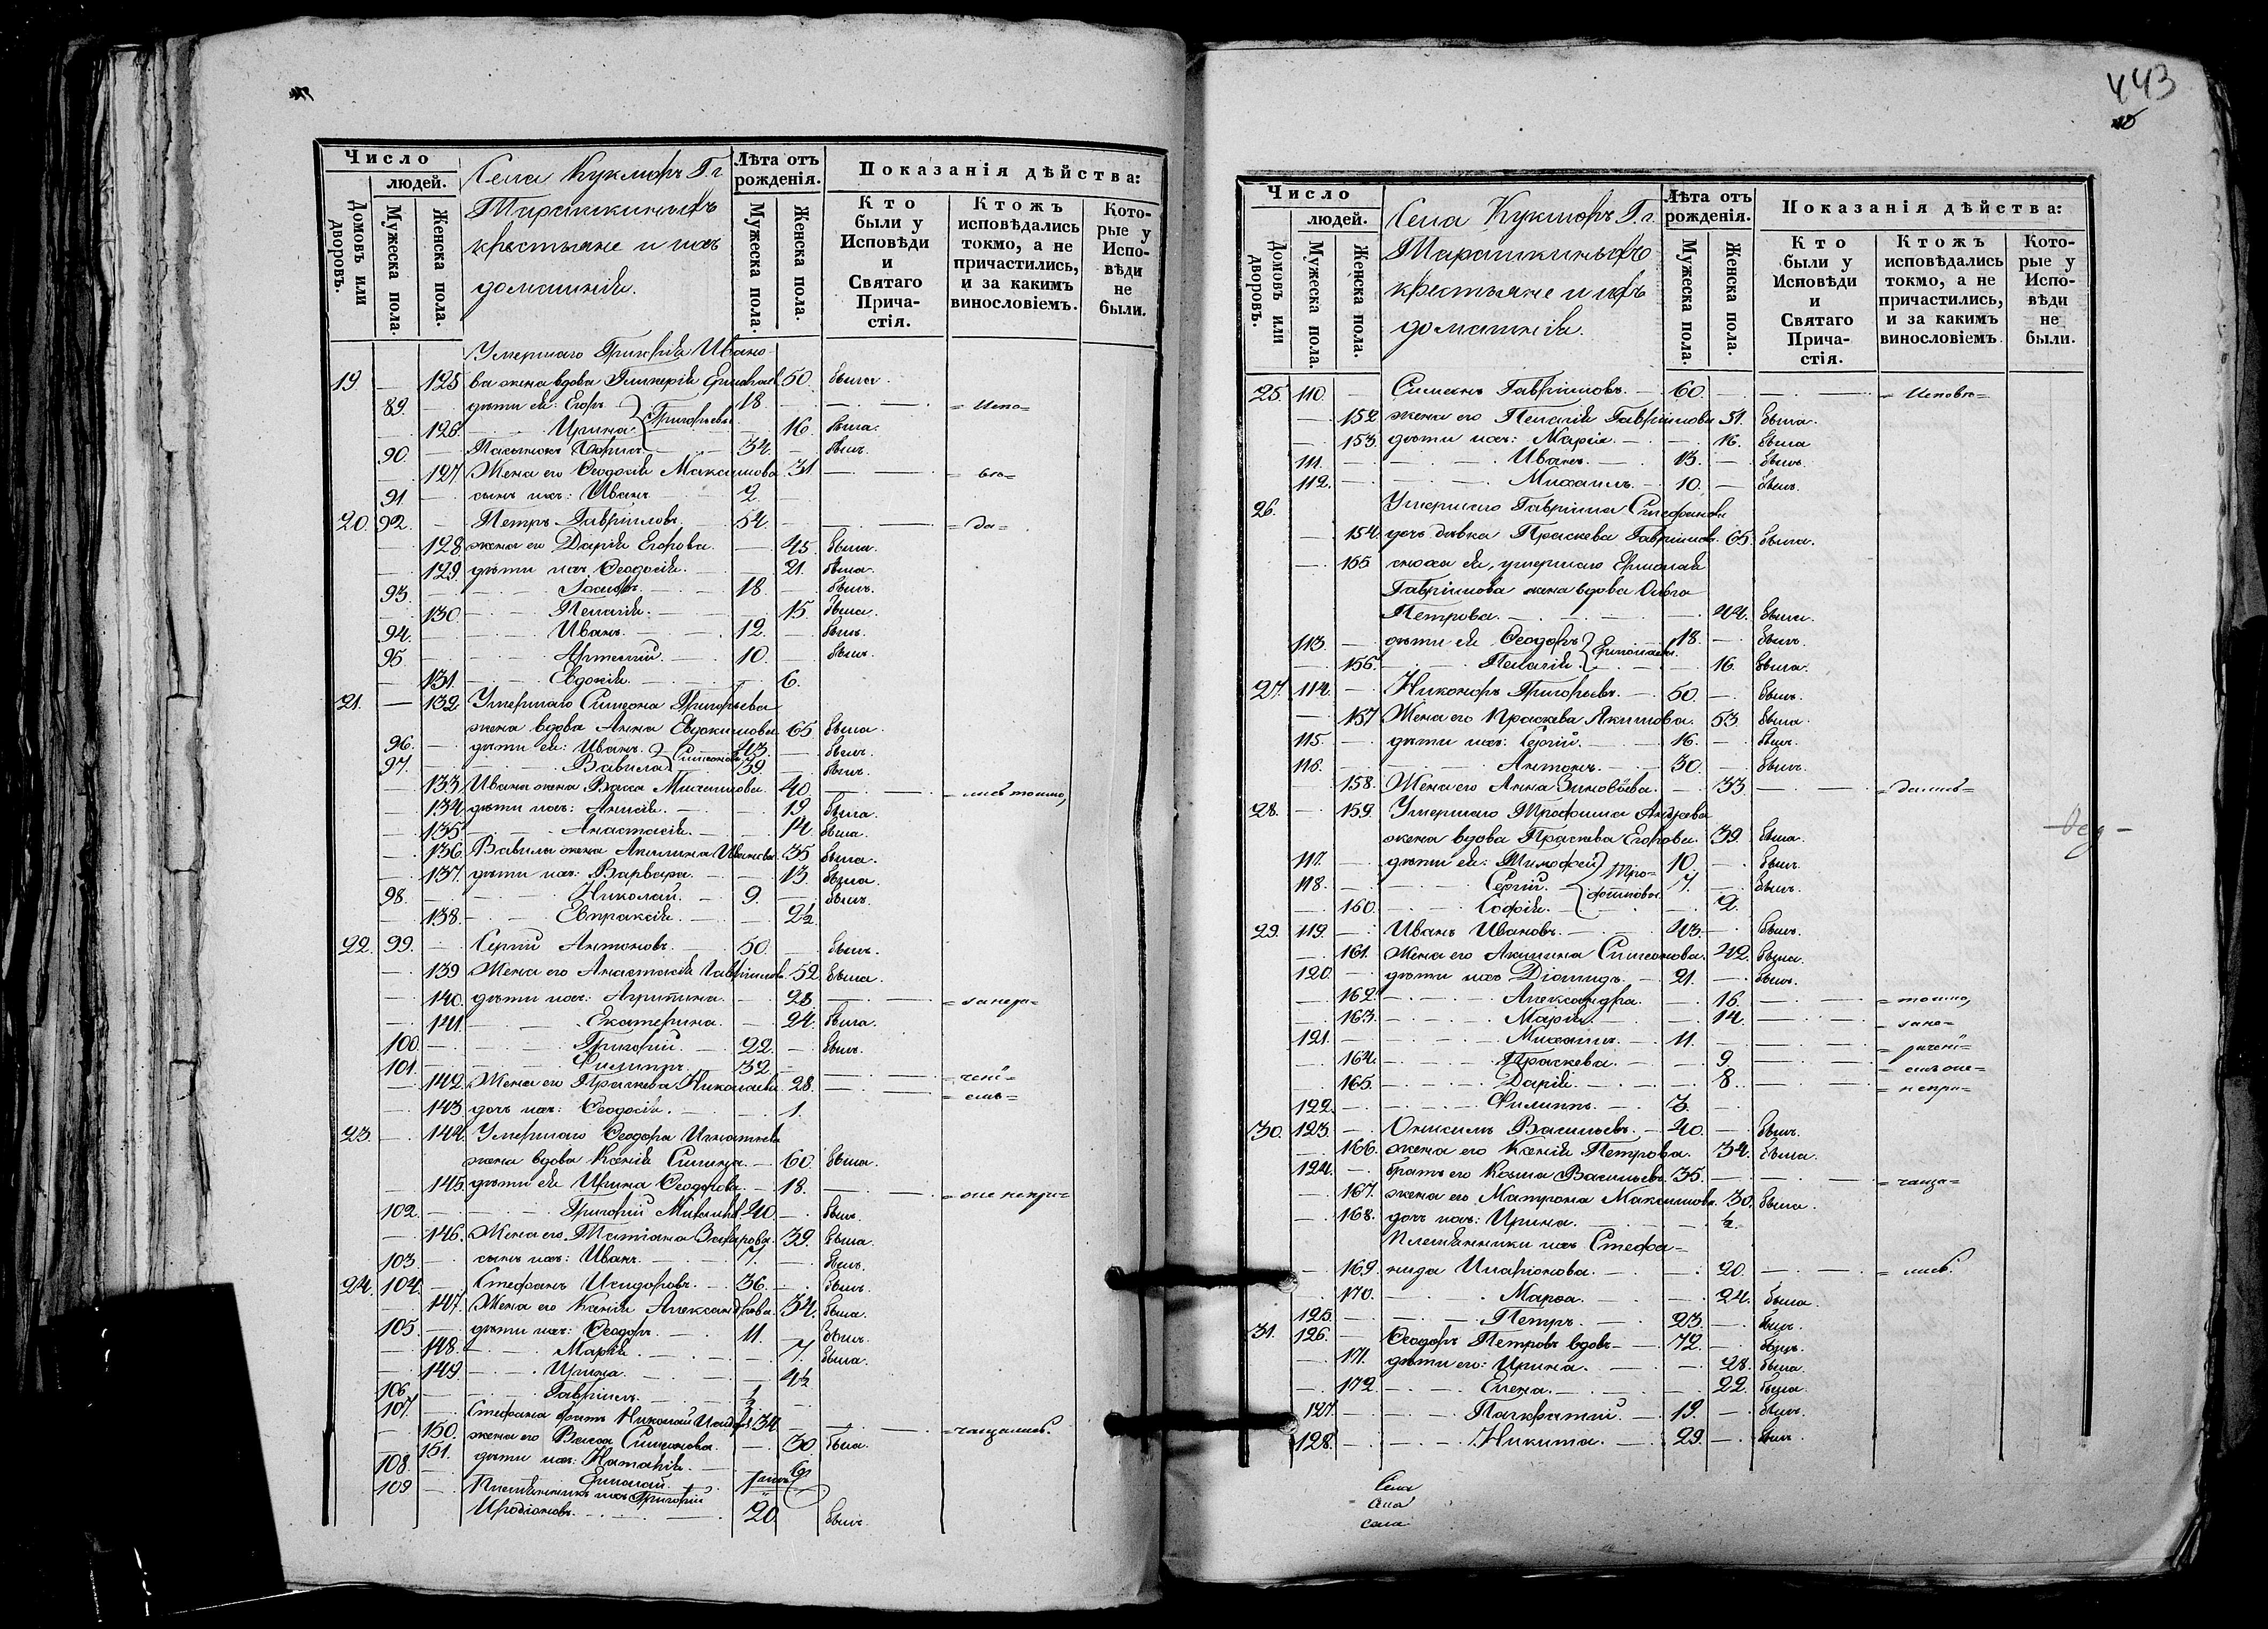 Число
людей.
Домовъ или дворовъ.
Мужеска пола.
Женска пола.
Села Кукморъ Г. г.
крестьяне и ихъ
домашнія.
Лѣта отъ рожденія.
Мужеска пола.
Женска пола.
Показанія дѣйства:
Кто были у Исповѣди и Святаго Прича-стія.
Ктожъ исповѣдались токмо, а не причастились, и за какимъ винословіемъ.
Кото-рые у Испо-вѣди не были.
Умершаго Григорія Ивано-
19. 125 ва жена вдова Гликерія 50. была.
89. дѣти ея: Егоръ 18 = Испо=
126. Ирина Григорьевы 16. была.
90. 34. былъ.
127. Жена его Ѳеодосія Максимова 31 = вѣ=
91 сынъ ихъ: Иванъ 2.
20. 92. Петръ Гавріиловъ 54. = да=
128. жена его Дарія Егорова. 45. была.
129. дѣти ихъ Ѳеодосія. 21. была.
93. Іосифъ 18 былъ.
130. Пелагія. 15. была.
94. Иванъ. 12. былъ.
95. Артемій. 10. былъ.
131. Евдокія. 6.
21. 132. Умершаго Симеона Григорьева
жена вдова Анна Евдокимова 65 была.
96. дѣти ея: Иванъ 43. былъ.
97. Вавила Симеоновы 39. былъ.
133. Ивана жена Васса Михаилова. 40. = лись токмо,
134. дѣти ихъ: Анисія. 19. была.
135. Анастасія. 14. была.
136. Вавилы жена Акилина Иванова. 35 была.
137. дѣти ихъ: Варвара. 13. была.
98. Николай. 9. былъ.
138. Евпраксія. 2½
22. 99. Сергій Антоновъ. 50. былъ.
139 Жена его Анастасія Гавріилова. 52. была.
140. дѣти ихъ: Агрипина. 28 = занера=
141. Екатерина. 24. была.
100. Григорій. 22. былъ.
101. Филиппъ. 32.
142. Жена его Праскева Николаева 28. = чені=
143. дочь ихъ: Ѳеодосія. 1. = емъ=
23. 144. Умершаго Ѳеодора Игнатьева
жена вдова Ксенія Силина. 60. была.
145. дѣти ея Ирина Ѳеодорова. 18. = оне непри=
102. Григорій 40. былъ.
146. Жена его Татіана Захарова. 39. была.
103. сынъ ихъ: Иванъ. 7. былъ.
24. 104. Стефанъ Исидоровъ. 36. былъ.
147. Жена его Ксенія Александрова. 34. была.
105. дѣти ихъ: Ѳеодоръ. 11. былъ.
148. Марія. 7. была.
149. Ирина. 4½
106. Гавріилъ. ½
107. Стефана братъ Николай Исидор. 34
150. жена его Васса Симеонова. 30 была. = чащались.
108. 151. дѣти ихъ: Наталія. 6
Ермолай. 1
109 Племянникъ ихъ Григорій
Иродіоновъ. 20. былъ.
443
Число
людей.
Домовъ или дворовъ.
Мужеска пола.
Женска пола.
Села Кукморъ Г. г.
крестьяне и ихъ
домашнія.
Лѣта отъ рожденія.
Мужеска пола.
Женска пола.
Показанія дѣйства:
Кто были у Исповѣди и Святаго Прича-стія.
Ктожъ исповѣдались токмо, а не причастились, и за какимъ винословіемъ
Кото-рые у Испо-вѣди не были.
25. 110. Симеонъ Гавріиловъ. 60. = Исповѣ=
152. жена его Пелагія Гавріилова 51. была.
153. дѣти ихъ: Марія. 16. была
111. Иванъ. 13. былъ.
112. Михаилъ. 10. былъ.
26. Умершаго Гавріила Стефанова
154. дочь дѣвка Праскева Гавріилов. 65. была.
155 сноха ея, умершаго Ермолая
Гавріилова жена вдова Ольга
Петрова. 44. была.
113. дѣти ея Ѳеодоръ 18. былъ.
156. Пелагія Ермолаевы. 16. была.
27. 114. Никоноръ Григорьевъ. 50. былъ.
157 Жена его Праскева Акимова. 53. была.
115. дѣти ихъ: Сергій. 16. былъ.
116. Антонъ. 30. былъ.
158. Жена его Анна Зиновьева. 33. = дались=
28. 159. Умершаго Трофима Андреева
жена вдова Праскева Егорова. 39. была.
117. дѣти ея: Тимофей 10. былъ.
118. Сергій. Тро=фимовы 7. былъ.
160. Софія. 2.
29. 119. Иванъ Ивановъ. 43. былъ.
161. Жена его Акилина Симеонова. 42. была.
120. дѣти ихъ Діомидъ. 21. былъ.
162. Александра. 16. = токмо,
163. Марія. 14. = зане=
121. Михаилъ. 11. = рачені=
164. Праскева. 9 = емъ оне=
165. Дарія. 8. = непри=
122. Филиппъ. 3.
30. 123. Онисимъ Васильевъ. 40. былъ.
166. жена его Ксенія Петрова. 34. была.
124. братъ его Козма Васильевъ. 35. = чаща=
167. жена его Матрона Максимова. 30. была.
168. дочь ихъ: Ирина. ½.
Племянники ихъ Стефа=
169. нида Иларіонова. 20. = лись.
170. Марѳа. 24. была.
125. Петръ. 23. былъ.
31. 126. Ѳеодоръ Петровъ вдовъ 72. былъ.
171. дѣти его: Ирина. 28. была.
172. Елена. 22. была.
127. Панкратій. 19. былъ.
128. Никита. 29. былъ.
Села
Села
Села